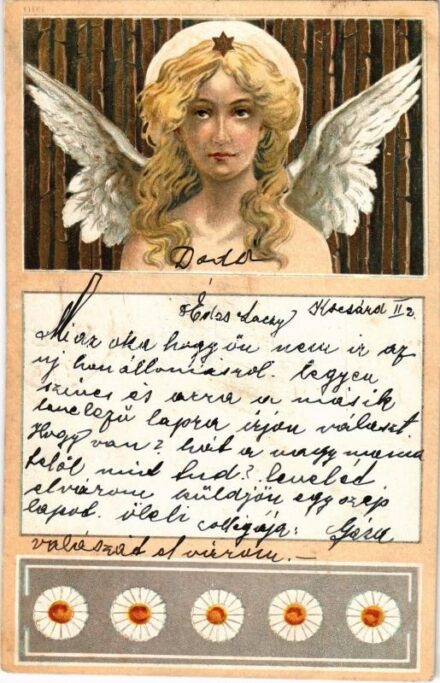 Édes Laczy Kocsárd II 2.
Mi az oka hogy ön nem ir az
új hon állomásról. legyen
szives és arra a másik
levelező lapra írjon választ.
Hogy van? hát a nagy mama
felől mit tud? leveled
elvárom küldjön egy szép
lapot. öleli Géza
válaszát el várom. —